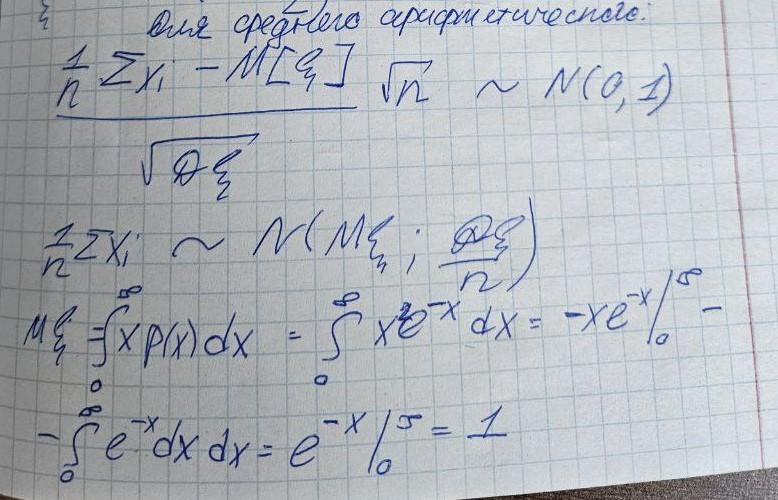 Для среднего арифметического:
1/n Σxi − M[ξ] / √Dξ √n ~ N(0,1)
1/n Σxi ~ N(Mξ; Dξ/n)
Mξ = ∫₀^∞ x p(x)dx = ∫₀^∞ x e^−x dx = −xe^−x |₀^∞ −
− ∫₀^∞ e^−x dx dx = e^−x |₀^∞ = 1